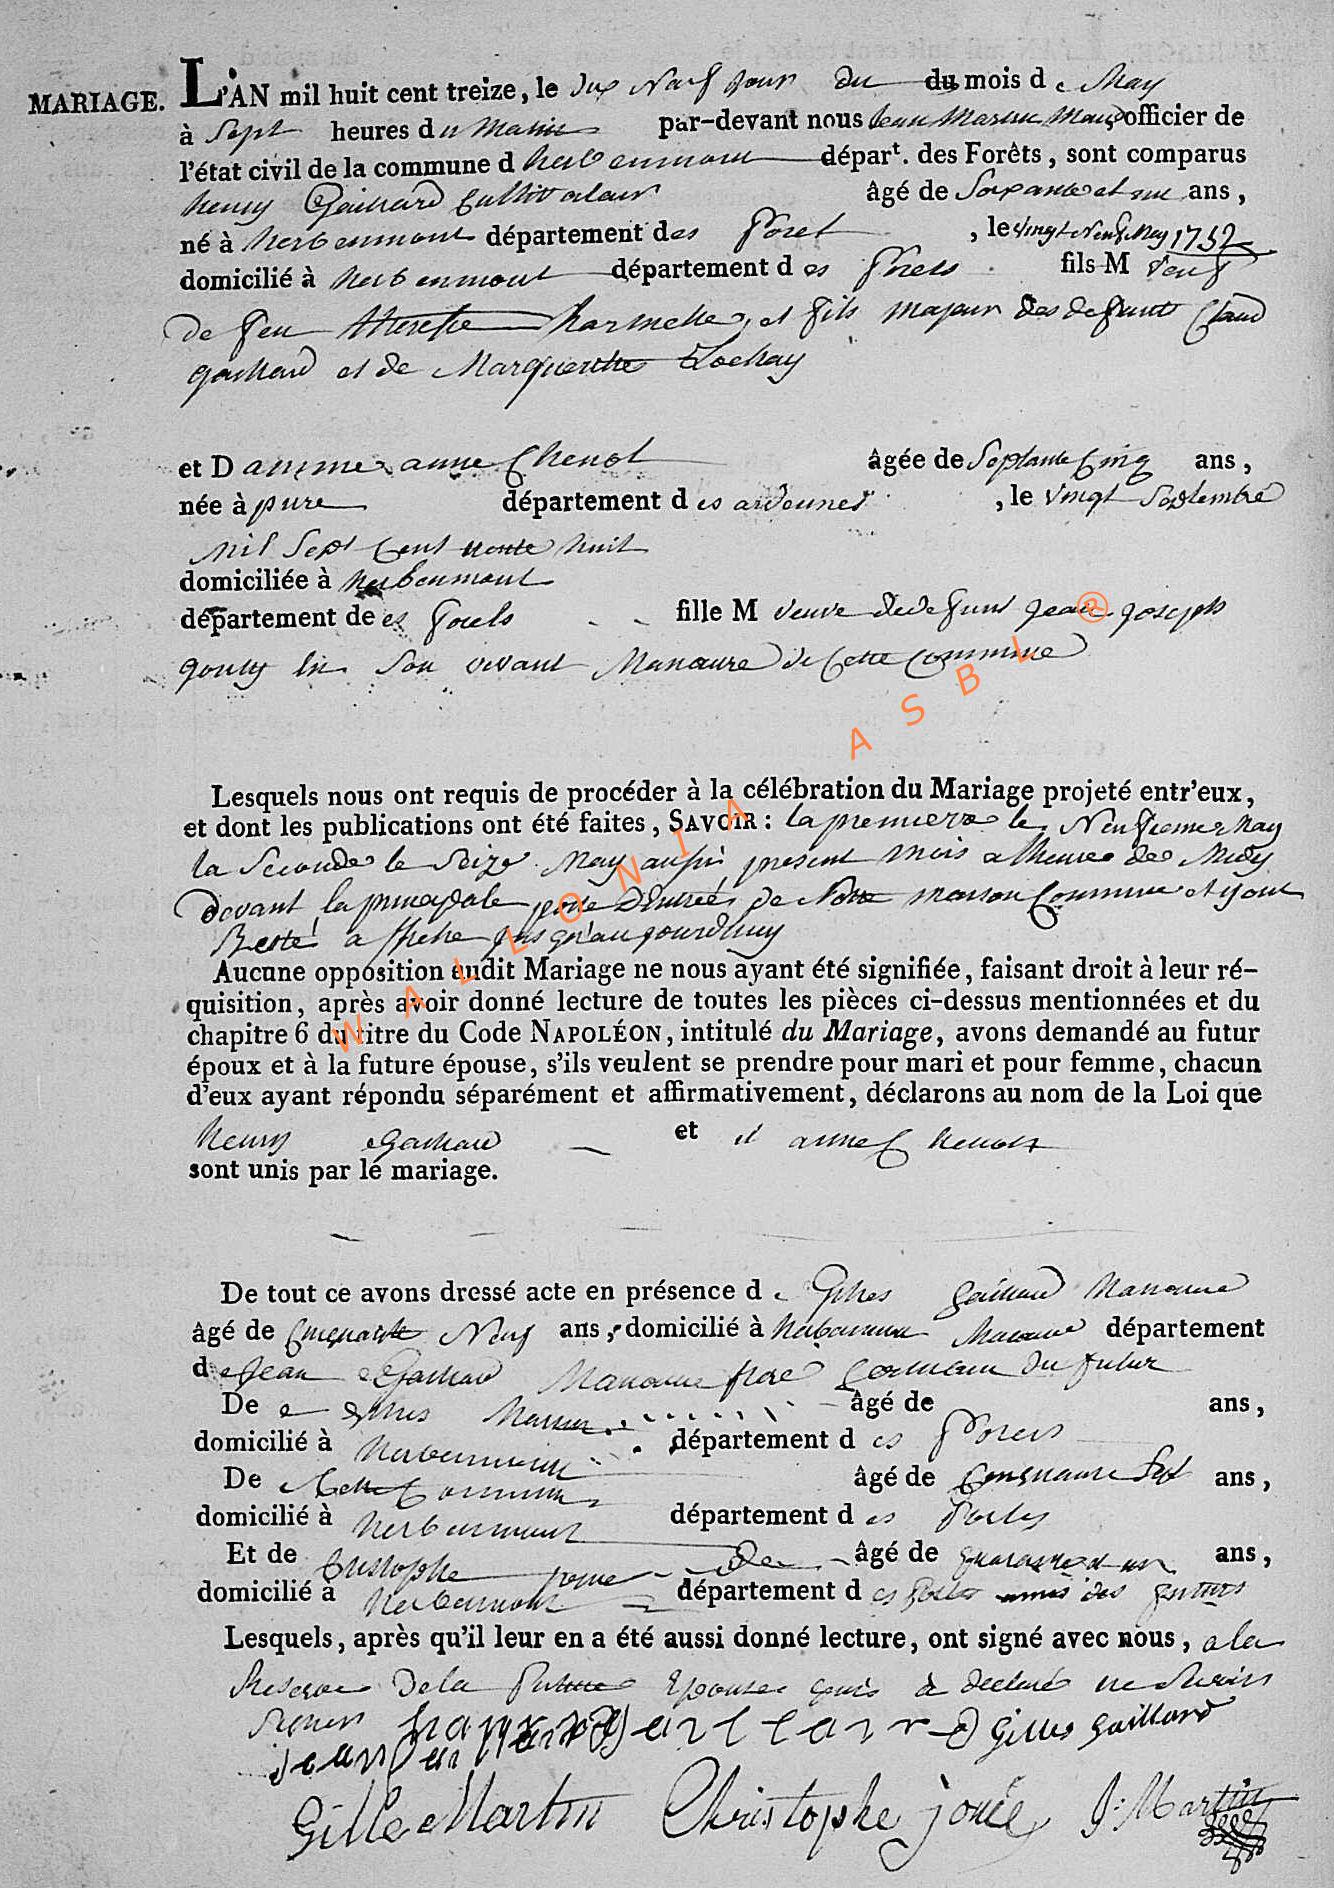 MARIAGE. L'AN mil huit cent treize, le dix Neuf jour du du mois de May
à Sept heures du Matin par-devant nous Jean Martin officier de
l'état civil de la commune d herbeumont départ. des Forêts, sont comparus
henry Gaillard Cultivateur âgé de Soixante et un ans,
né à herbeumont département des Foret, le vingt Neuf May 1752
domicilié à herbeumont département des Forets fils M veuf
de feu harmelle, et fils majeur des defunts Claud
gaillard et de Margueritte Lochay
et Damme anne Chenot âgée de Septante Cinq ans,
née à pure département des ardennes, le vingt Septembre
Mil Sept Cent trente huit
domiciliée à herbeumont
département des Forets fille M veuve de defunt jean joseph
gouy en Son vivant Manœuvre de Cette Commune
Lesquels nous ont requis de procéder à la célébration du Mariage projeté entr'eux,
et dont les publications ont été faites, SAVOIR : la premiere le Neufieme May
la Seconde le Seize May aussi present Mois a lheure de Midy
devant la principale porte D'Entrée de Notre maison Commune et ayant
Resté affiché jusqu'aujourdhuy
Aucune opposition audit Mariage ne nous ayant été signifiée, faisant droit à leur ré-
quisition, après avoir donné lecture de toutes les pièces ci-dessus mentionnées et du
chapitre 6 du titre du Code NAPOLÉON, intitulé du Mariage, avons demandé au futur
époux et à la future épouse, s'ils veulent se prendre pour mari et pour femme, chacun
d'eux ayant répondu séparément et affirmativement, déclarons au nom de la Loi que
henry Gaillard et et anne Chenot
sont unis par le mariage.
De tout ce avons dressé acte en présence de Gilles Gaillard Manœuvre
âgé de Cinquante Neuf ans, domicilié à herbeumont Manœuvre département
de Jean Gaillard Manœuvre frere germain du futur
De Gilles Martin âgé de ans,
domicilié à herbeumont département des Forets
De Cette Commune âgé de Cinquante Sept ans,
domicilié à herbeumont département des Forets
Et de Cristophe jouée De âgé de quarante et un ans,
domicilié à herbeumont département des Forets amis des futurs
Lesquels, après qu'il leur en a été aussi donné lecture, ont signé avec nous, a la
Reserve De la Future Epouse quis a declaré ne Savoir
Signer gaillard Gilles gaillard
Gille Martin Christophe jouée J: Martin
WALLONIA ASBL ®